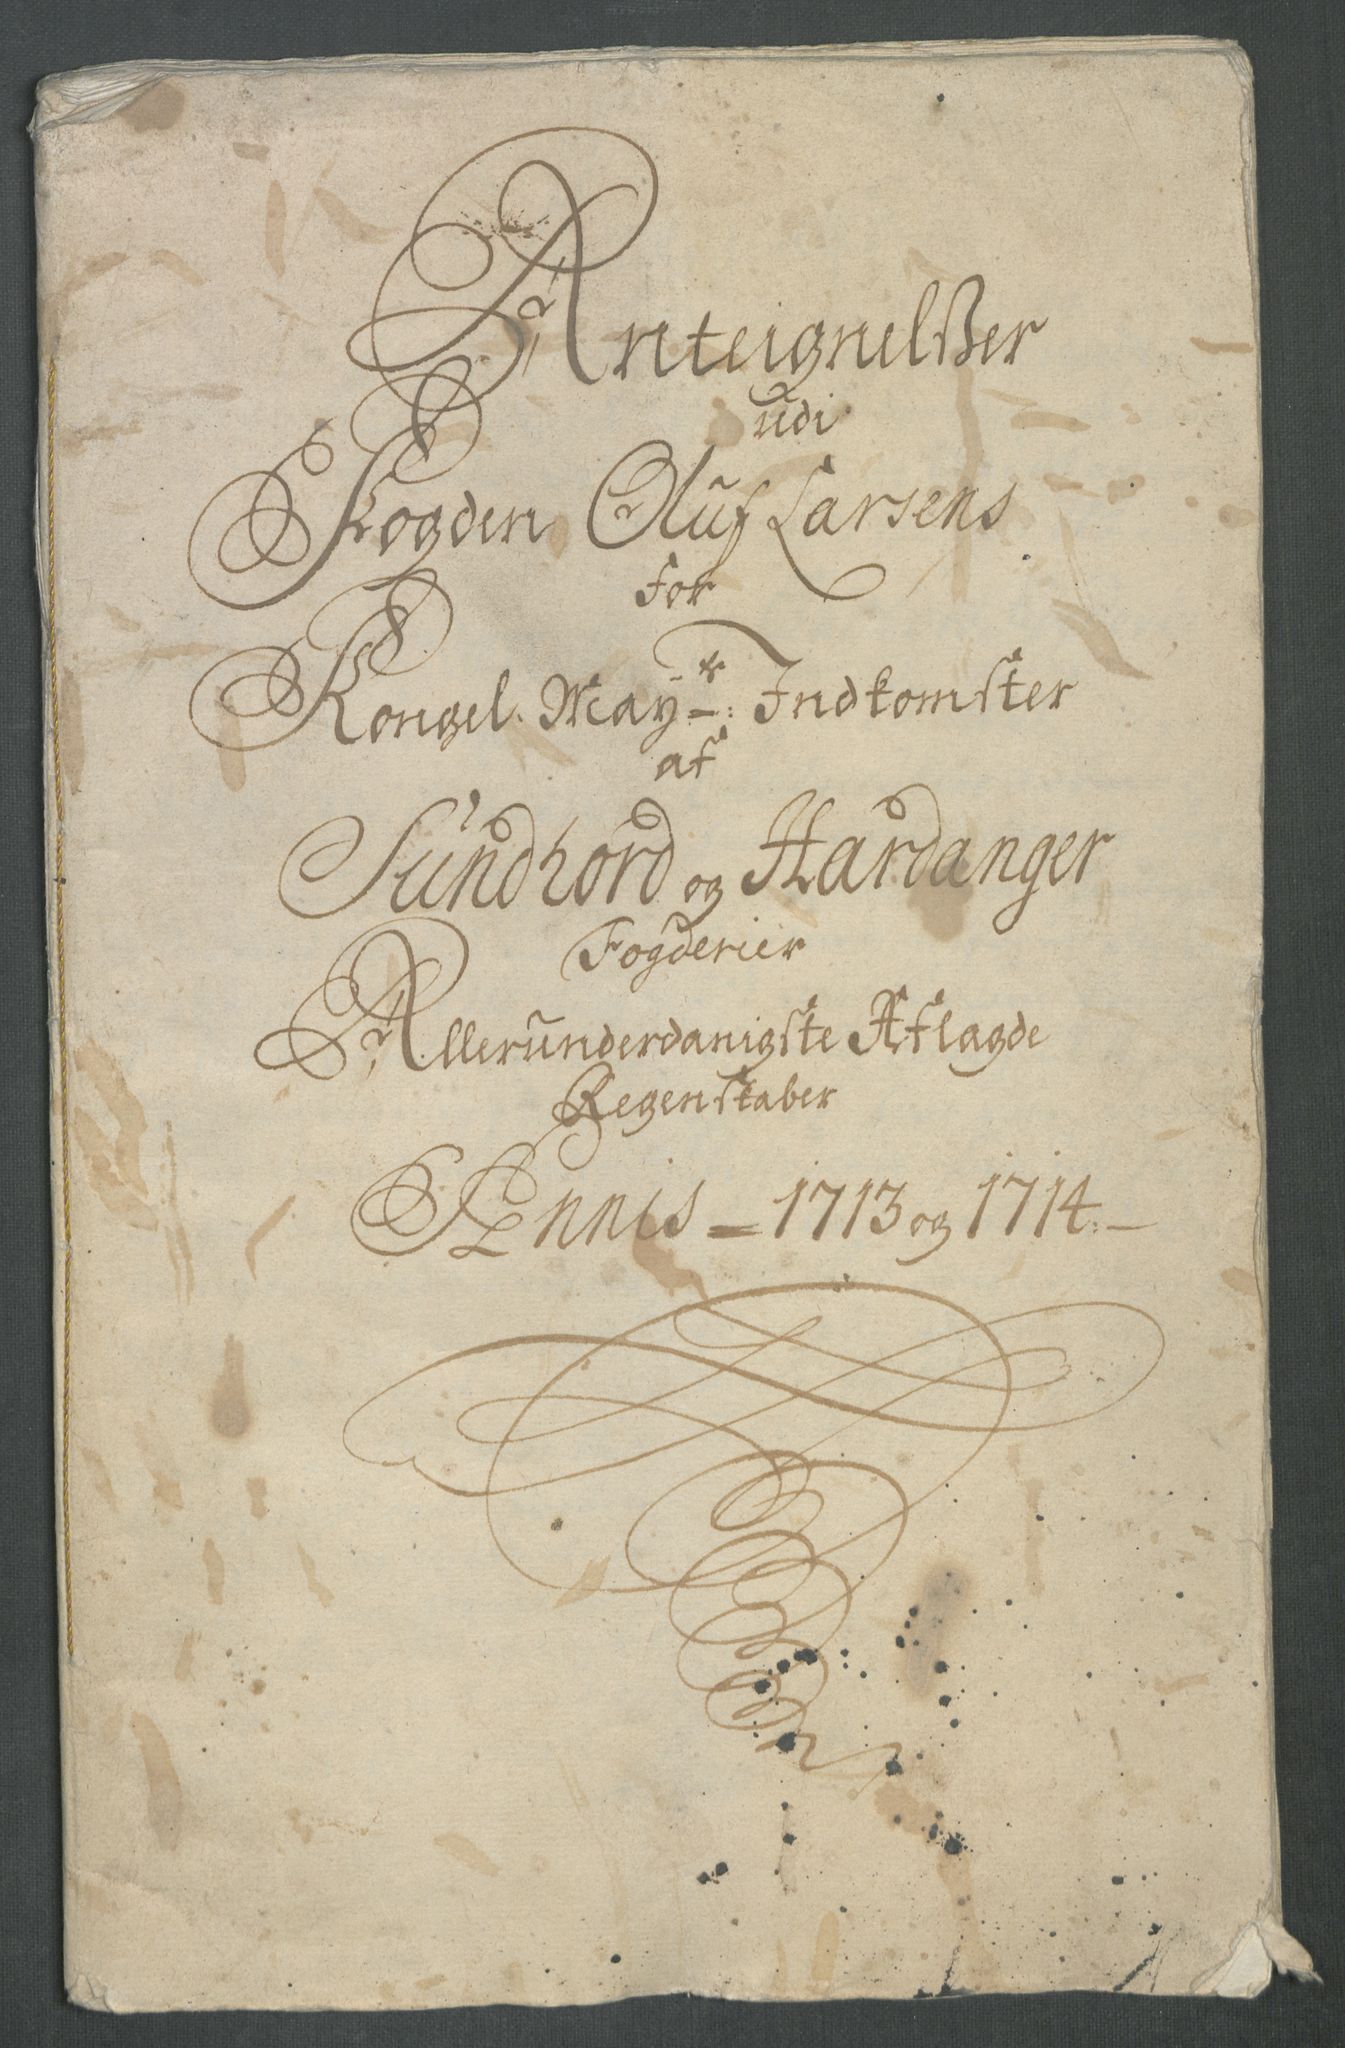 Anteignelßer
udi
Fogden Oluf Larsens
for
Kongel. May.ts: Indkomster
af
Sundhord og Hardanger
Fogderier
Allerunderdanigste Aflagde
Regenskaber
Annis = 1713 og 1714:—